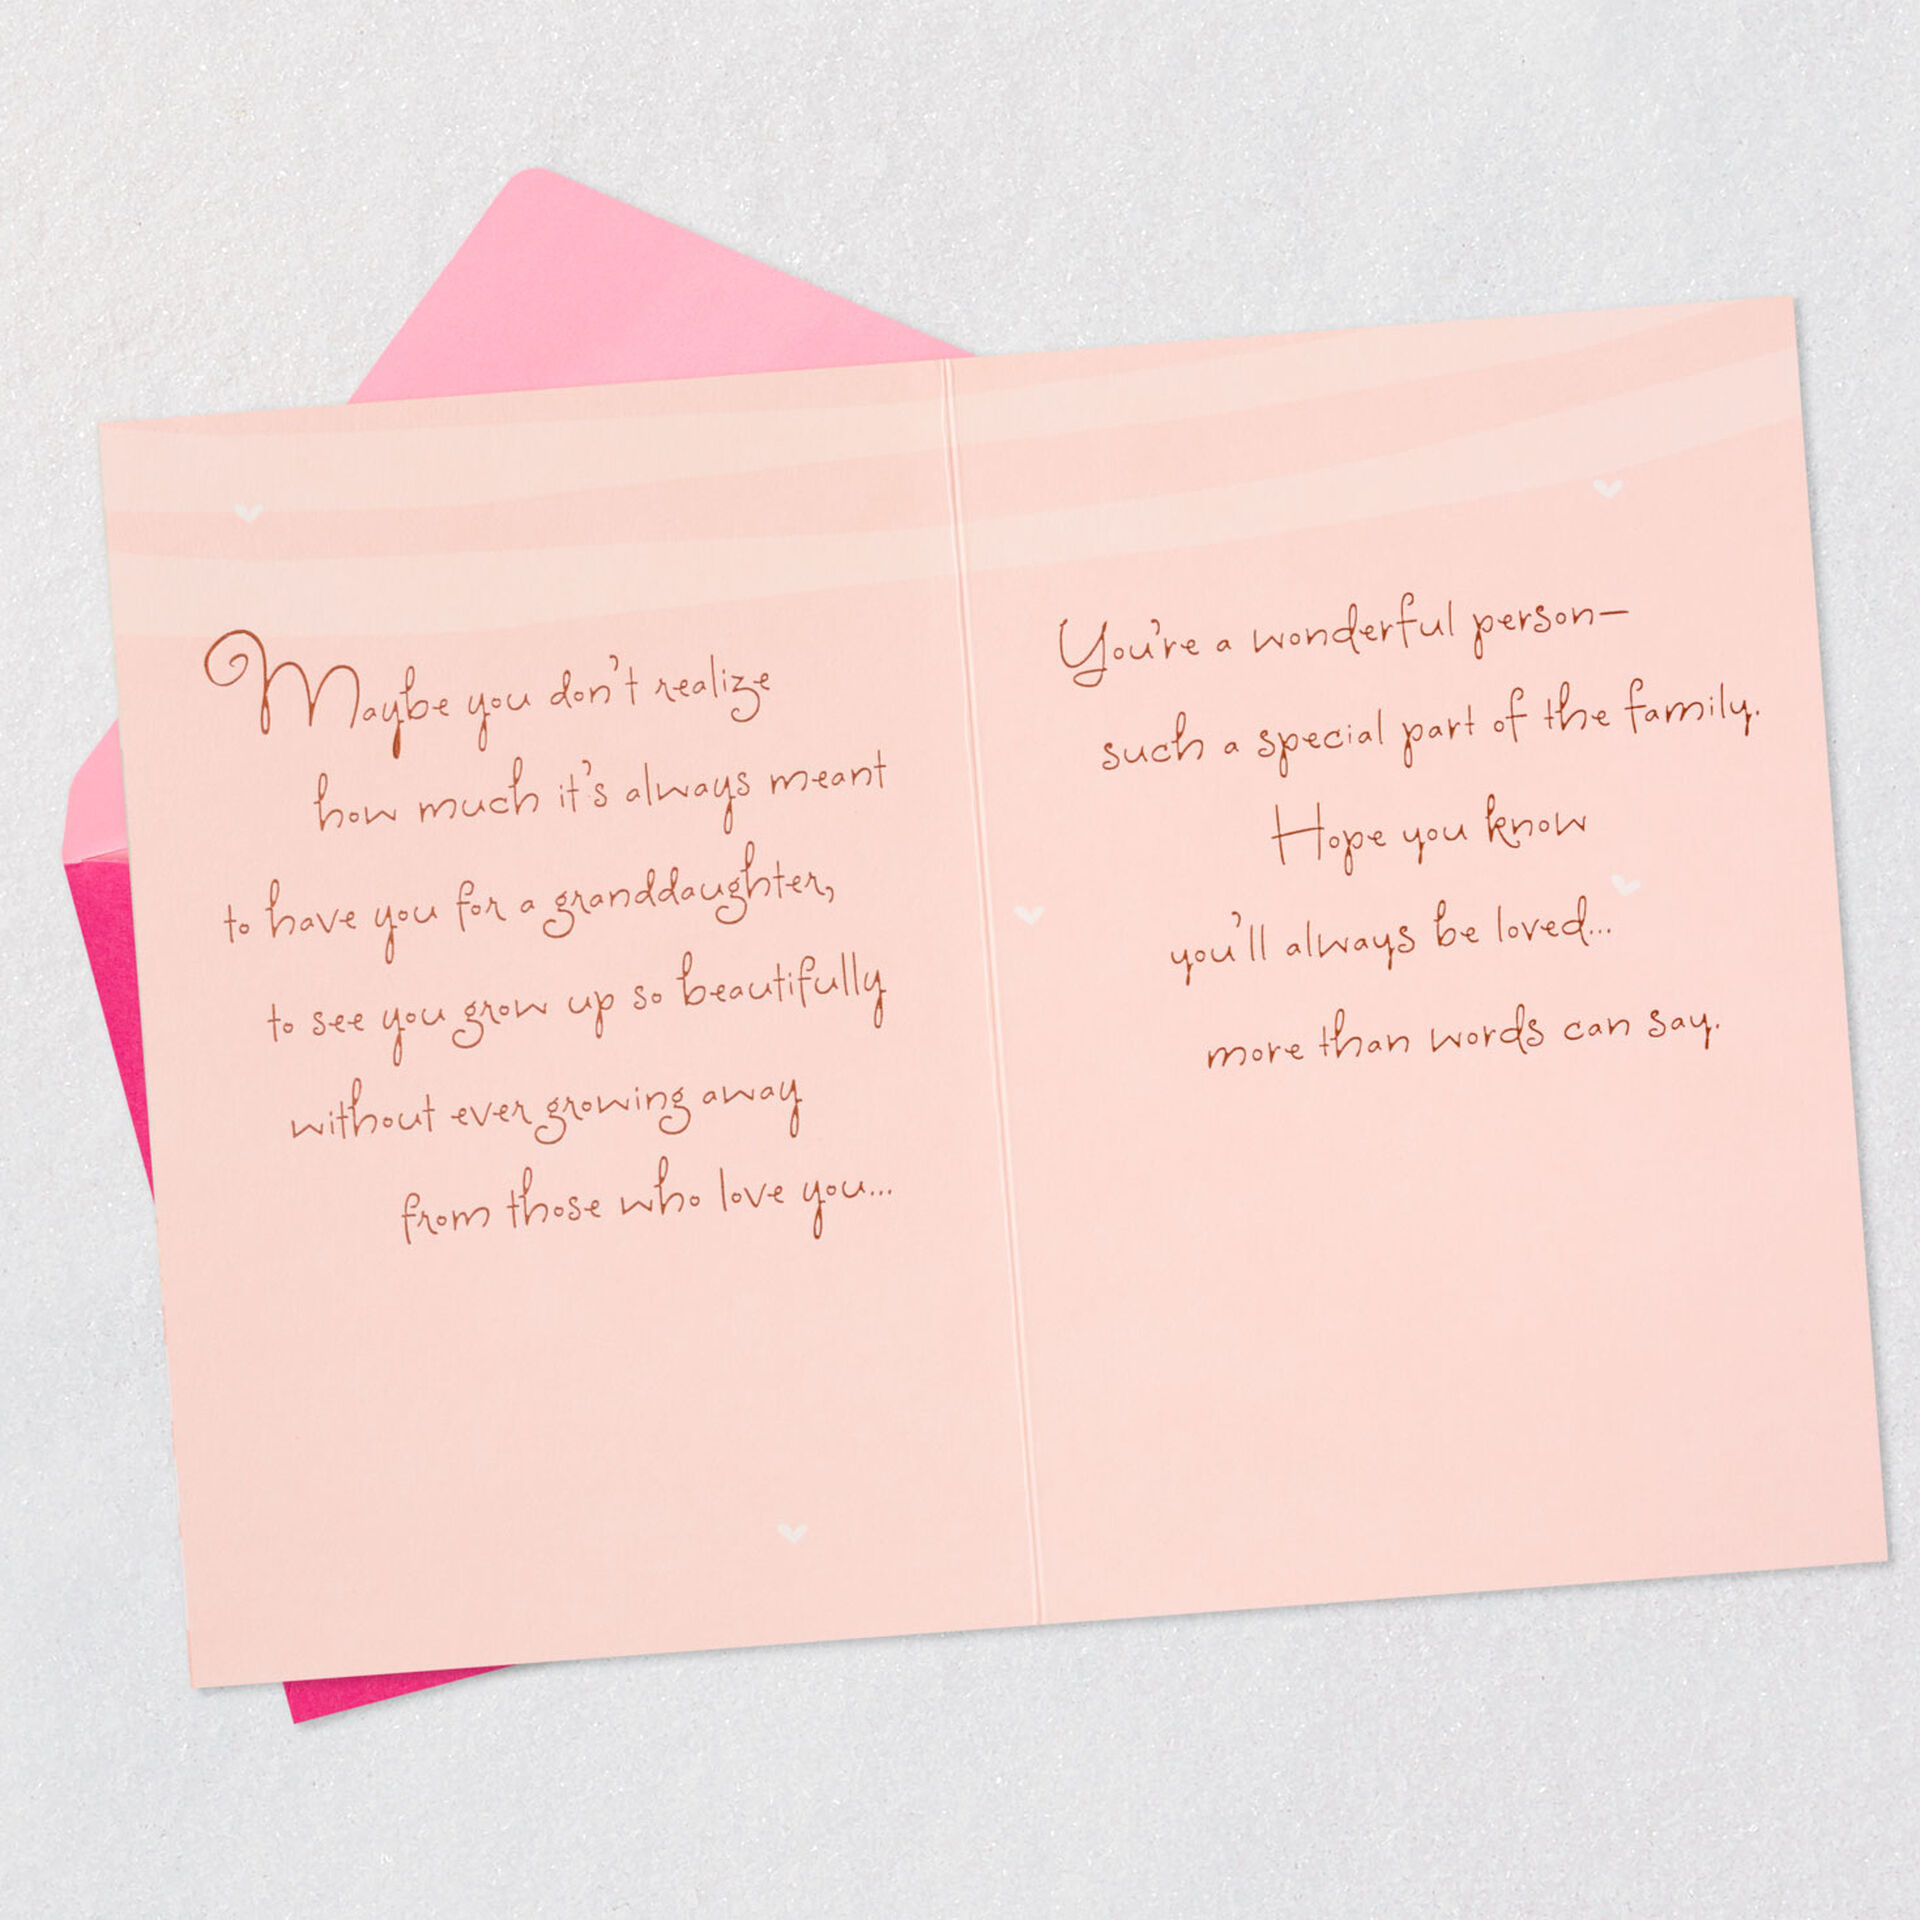 Maybe you don't realize
how much it's always meant
to have you for a granddaughter,
to see you grow up so beautifully
without ever growing away
from those who love you...
You're a wonderful person—
such a special part of the family.
Hope you know
you'll always be loved...
more than words can say.